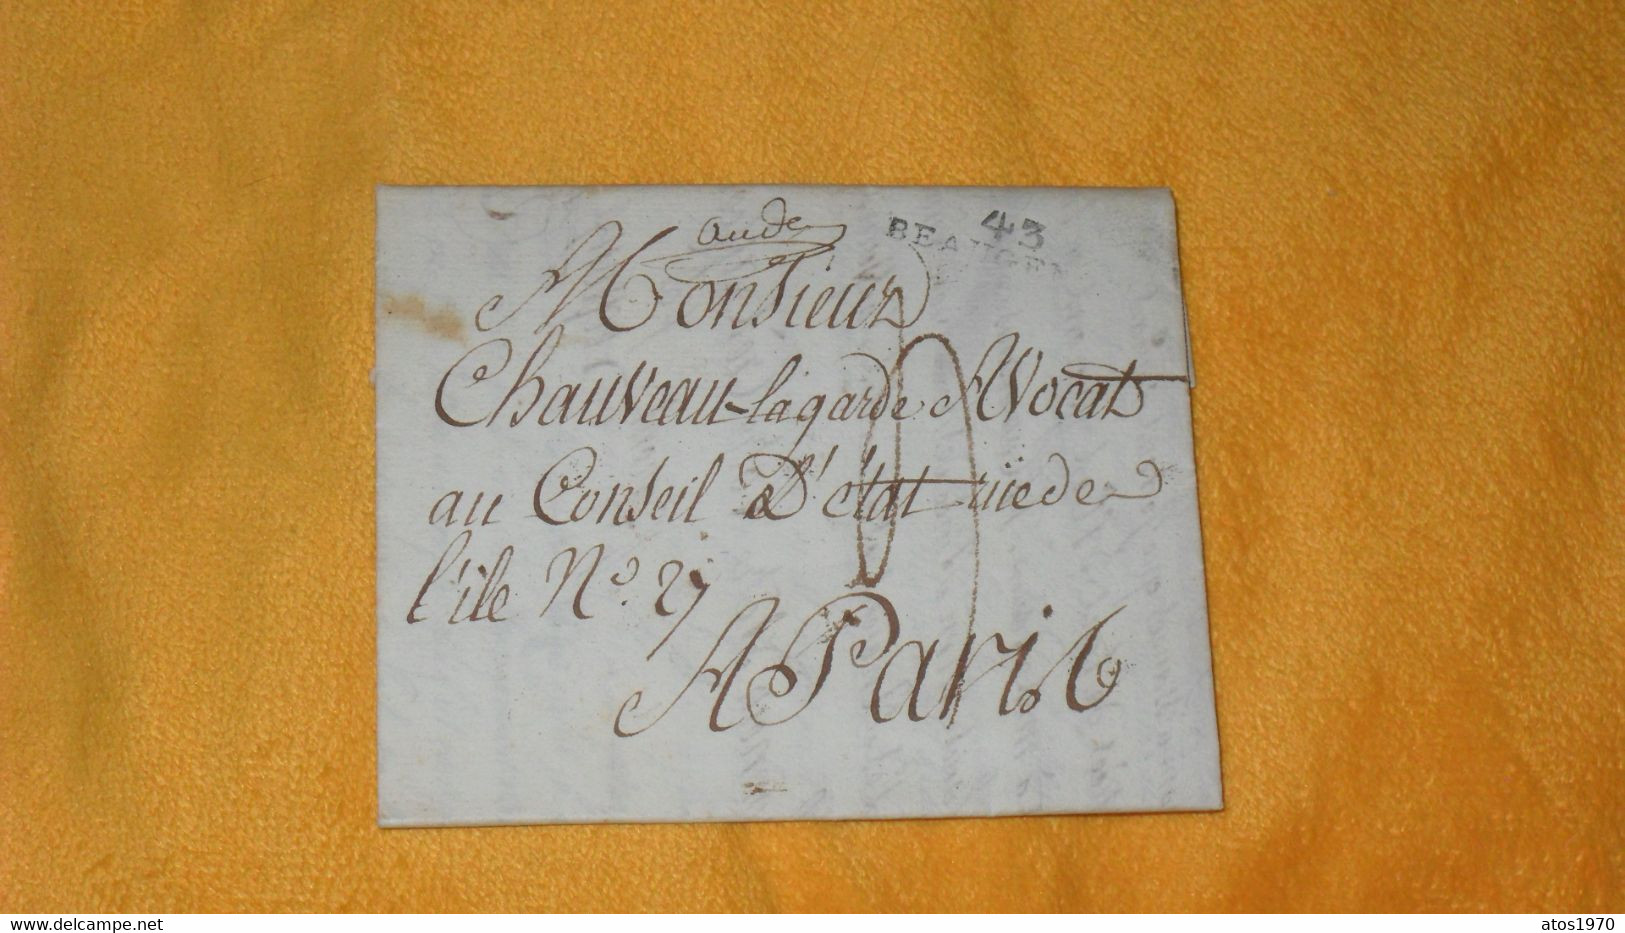 aude
43
BEAUGEN
Monsieur
Chauveau-lagarde Avocat
au Conseil d'état rüe de
l'ile N.o 27
A Paris
delcampe.net
atos1970